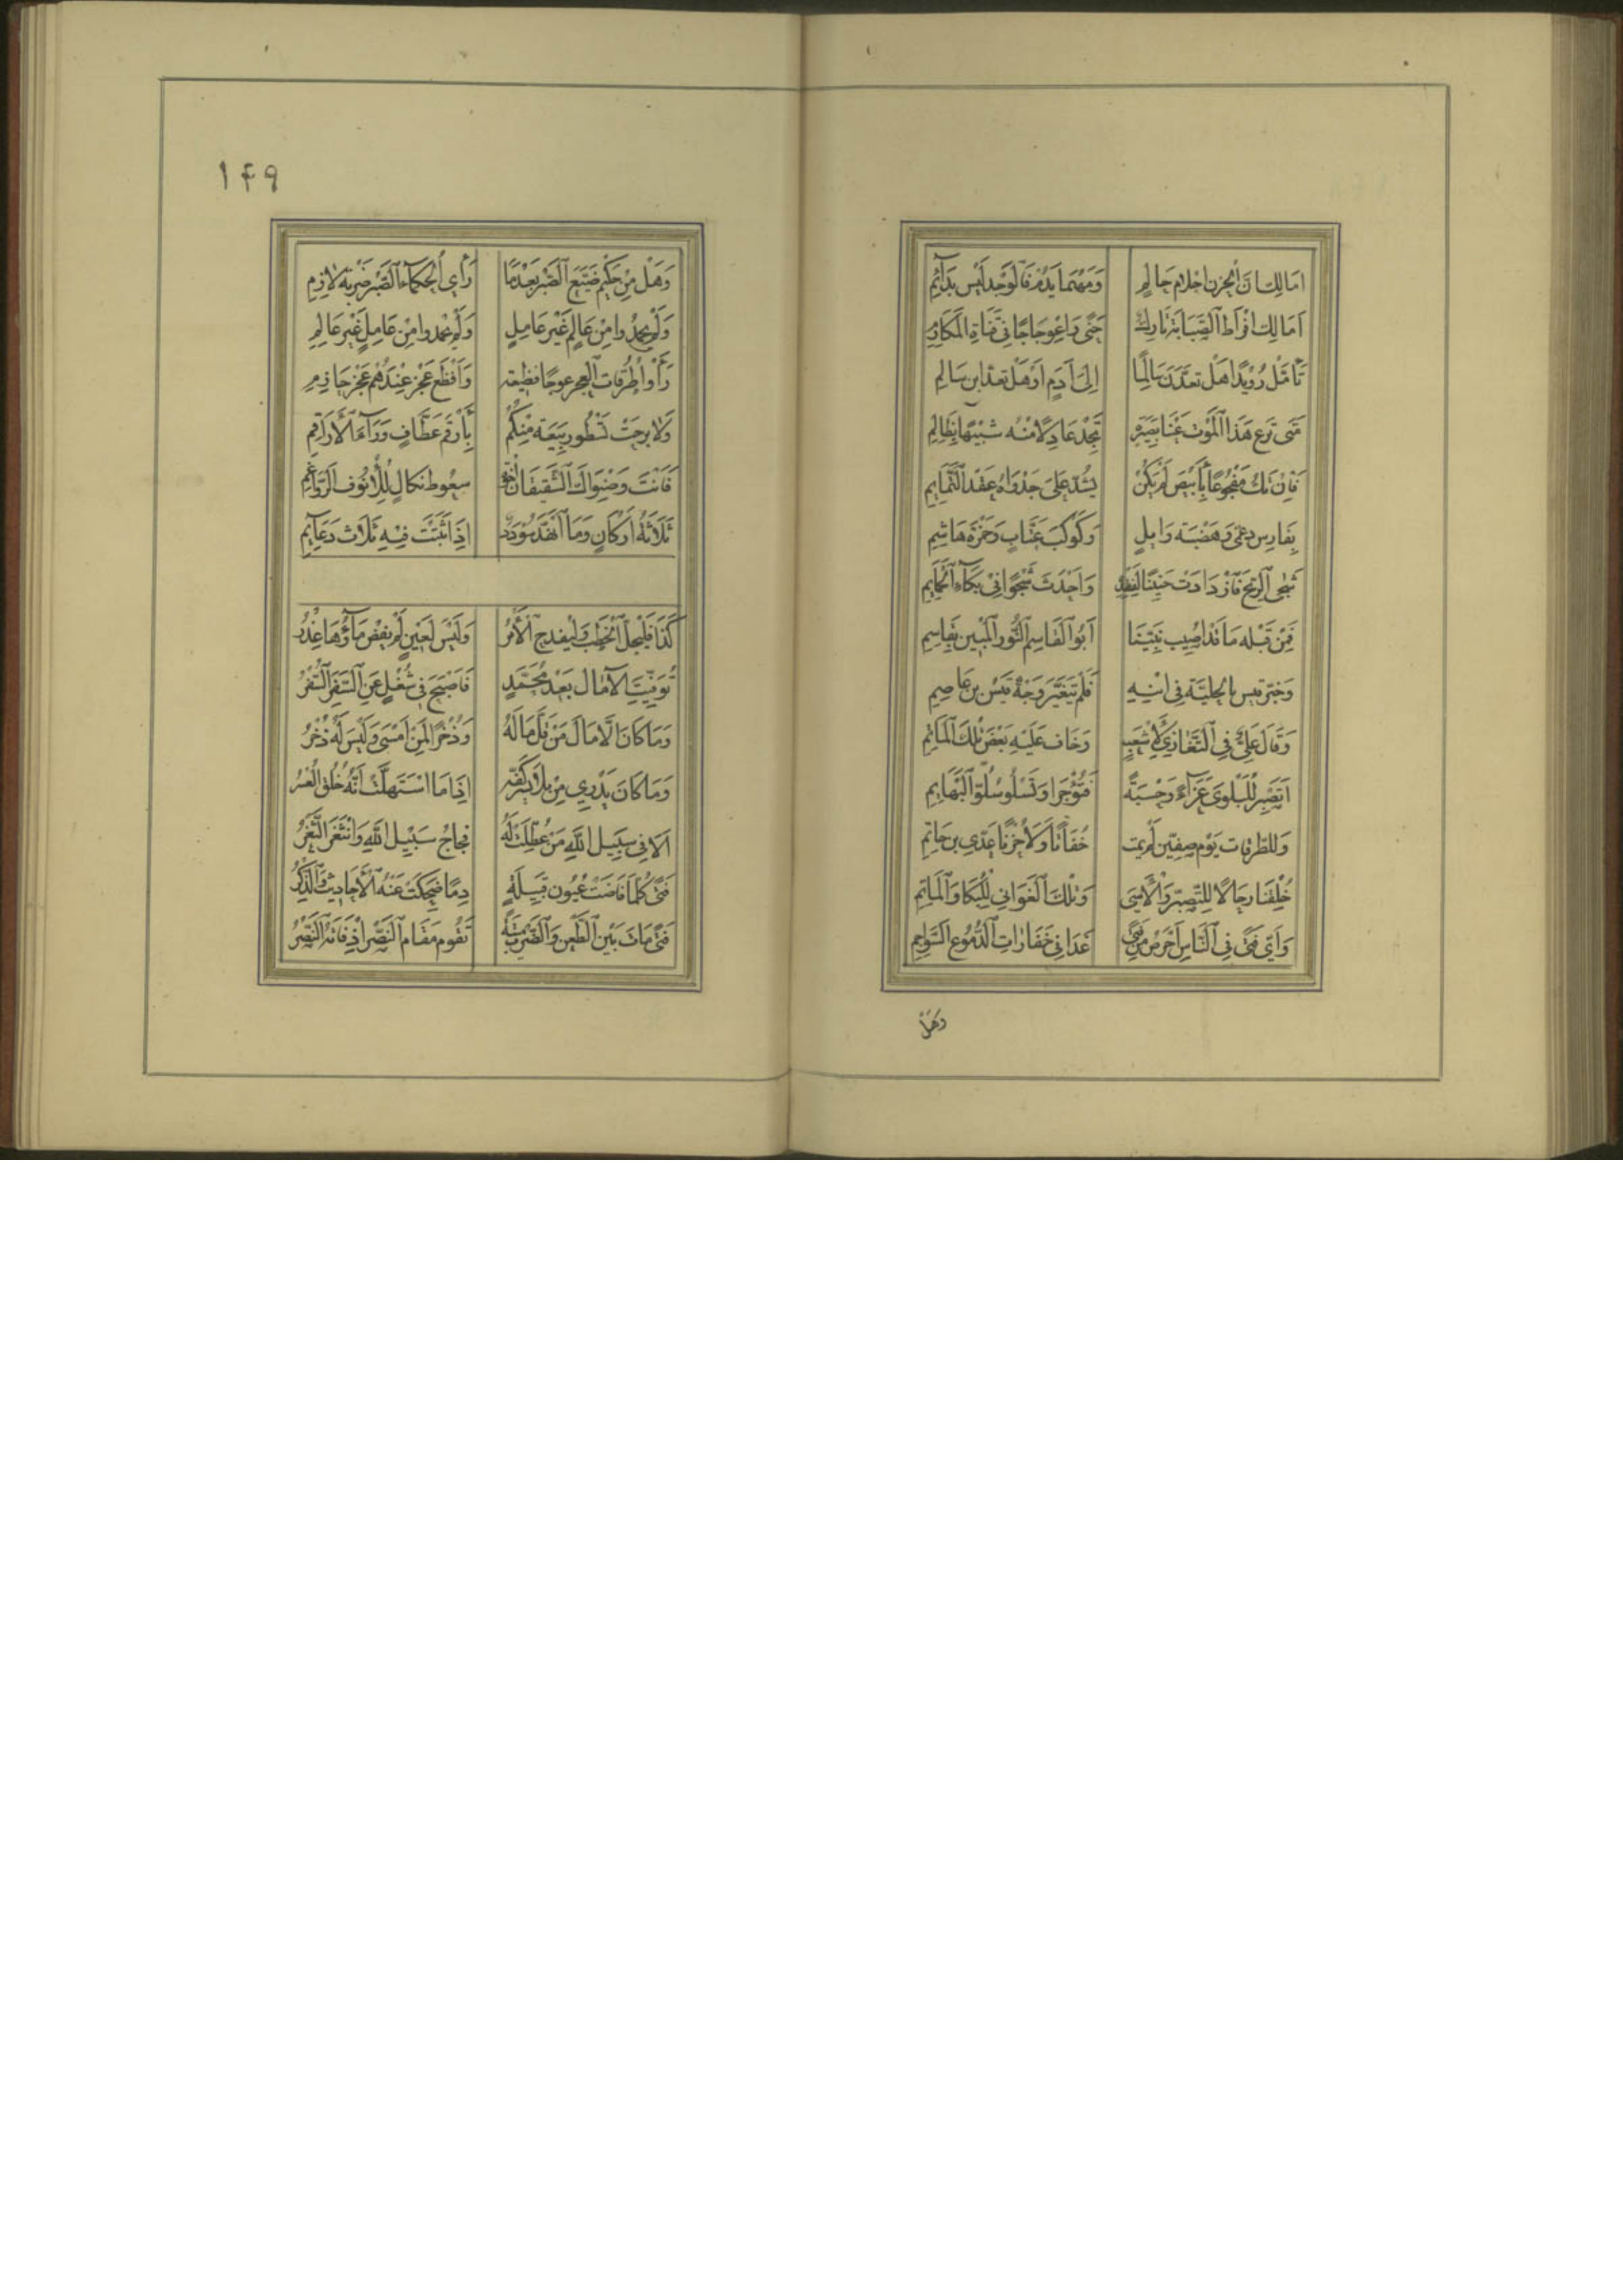 اَمَالِكُ اِنَّ الْحُزْنَ اَحْلَامُ حَالِمٍ وَمَهْمَا يَدُمْ فَالْوَجْدُ لَيْسَ بِدَآئِمِ
اَمَالِكُ اِفْرَاطُ الصَّبَابَةِ تَارِكٌ حَنًى وَاعْوِجَاجًا فِي قَنَاةِ الْمَكَارِمِ
تَأَمَّلْ رُوَيْدًا هَلْ تَعُدَّنَّ سَالِمًا اِلَى آدَمٍ اَوْ هَلْ تَعُدُّ ابْنَ سَالِمِ
مَتَى تَرْعَ هَذَا الْمَوْتَ عَيْنًا بَصِيرَةً تَجِدْ عَادِلًا مِنْهُ شَبِيهًا بِظَالِمِ
فَاِنْ تَكُ مَفْجُوعًا بِأَبْيَضَ لَمْ يَكُنْ يَشُدُّ عَلَى جَدْوَاهُ عَقْدَ التَّمَايِمِ
بِفَارِسِ دُعْمِيٍّ وَهَضْبَةِ وَايِلٍ وَكَوْكَبِ عَتَّابٍ وَحَمْزَةِ هَاشِمِ
شَجَى الرِّيحَ فَازْدَادَتْ حَنِينًا لِفَقْدِهِ وَاَحْدَثَ شَجْوًا فِي بُكَآءِ الْحَمَايِمِ
فَمِنْ قَبْلِهِ مَا قَدْ اُصِيبَ نَبِيُّنَا اَبُو الْقَاسِمِ النُّورُ الْمُبِينُ بِقَاسِمِ
وَخُبِّرَ قَيْسٌ بِالْجَلِيَّةِ فِي ابْنِهِ فَلَمْ يَتَغَيَّرْ وَجْهُ قَيْسِ بْنِ عَاصِمِ
وَقَالَ عَلِيٌّ فِي التَّعَازِي لِأَشْعَثٍ وَخَافَ عَلَيْهِ بَعْضَ تِلْكَ الْمَآثِمِ
اَتَصْبِرُ لِلْبَلْوَى عَزَآءً وَحِسْبَةً فَتُؤْجَرَ اَوْ تَسْلُو سُلُوَّ الْبَهَايِمِ
وَلِلطَّرَفَاتِ يَوْمَ صِفِّينَ لَمْ يَمُتْ خُفَاتًا وَلَا حُزْنًا عَدِيُّ بْنُ حَاتِمِ
خُلِقْنَا رِجَالًا لِلتَّصَبُّرِ وَالْأَسَى وَتِلْكَ الْغَوَانِي لِلْبُكَا وَالْمَآتِمِ
وَاَيُّ فَتًى فِي النَّاسِ اَحْرَضُ مِنْ فَتًى غَدَا فِي خَفَارَاتِ الدُّمُوعِ السَّوَاجِمِ
وَهَلْ
١٤٩
وَهَلْ مِنْ حَكِيمٍ ضَيَّعَ الصَّبْرَ بَعْدَمَا رَاَى الْحُكَمَآءُ الصَّبْرَ ضَرْبَةَ لَازِمِ
وَلَمْ يَحْمَدُوا مِنْ عَالِمٍ غَيْرِ عَامِلٍ وَلَمْ يَحْمَدُوا مِنْ عَامِلٍ غَيْرِ عَالِمِ
رَأَوْا طُرُقَاتِ الْعَجْزِ عُوجًا فَظِيعَةً وَاَفْظَعُ عَجْزٍ عِنْدَهُمْ عَجْزُ حَازِمِ
وَلَا بَرِحَتْ تَسْطُو رَبِيعَةُ مِنْكُمُ بِأَرْقَمَ عَطَّافٍ وَرَآءَ الْأَرَاقِمِ
فَأَنْتَ وَصِنْوَاكَ الشَّقِيقَانِ اِخْوَةٌ سَعُوطُ نَكَالٍ لِلْأُنُوفِ الرَّوَاغِمِ
ثَلَاثَةُ اَرْكَانٍ وَمَا انْهَدَّ سُؤْدَدٌ اِذَا ثَبَتَتْ فِيهِ ثَلَاثُ دَعَايِمِ
كَذَا فَلْيَجِلَّ الْخَطْبُ وَلْيَفْدَحِ الْأَمْرُ وَلَيْسَ لِعَيْنٍ لَمْ يَفِضْ مَآؤُهَا عُذْرُ
تُوُفِّيَتِ الْآمَالُ بَعْدَ مُحَمَّدٍ فَاَصْبَحَ فِي شُغْلٍ عَنِ السَّفَرِ السَّفْرُ
وَمَا كَانَ اِلَّا مَالَ مَنْ قَلَّ مَالُهُ وَذُخْرًا لِمَنْ اَمْسَى وَلَيْسَ لَهُ ذُخْرُ
وَمَا كَانَ يَدْرِي مَنْ بَلَا يُسْرَ كَفِّهِ اِذَا مَا اسْتَهَلَّتْ اَنَّهُ خُلِقَ الْعُسْرُ
اَلَا فِي سَبِيلِ اللّٰهِ مَنْ عُطِّلَتْ لَهُ فِجَاجُ سَبِيلِ اللّٰهِ وَانْثَغَرَ الثَّغْرُ
فَتًى كُلَّمَا فَاضَتْ عُيُونُ قَبِيلَةٍ دَمًا ضَحِكَتْ عَنْهُ الْأَحَادِيثُ وَالذِّكْرُ
فَتًى مَاتَ بَيْنَ الطَّعْنِ وَالضَّرْبِ مِيتَةً تَقُومُ مَقَامَ النَّصْرِ اِذْ فَاتَهُ النَّصْرُ